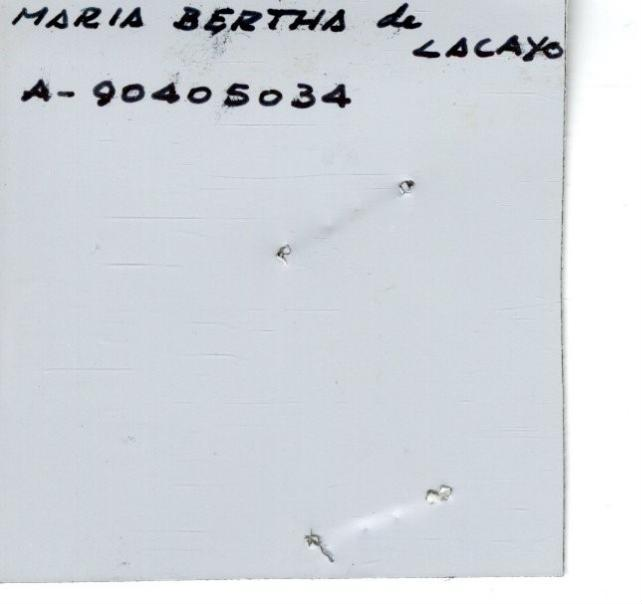 MARIA BERTHA de
LACAYO
A-90405034